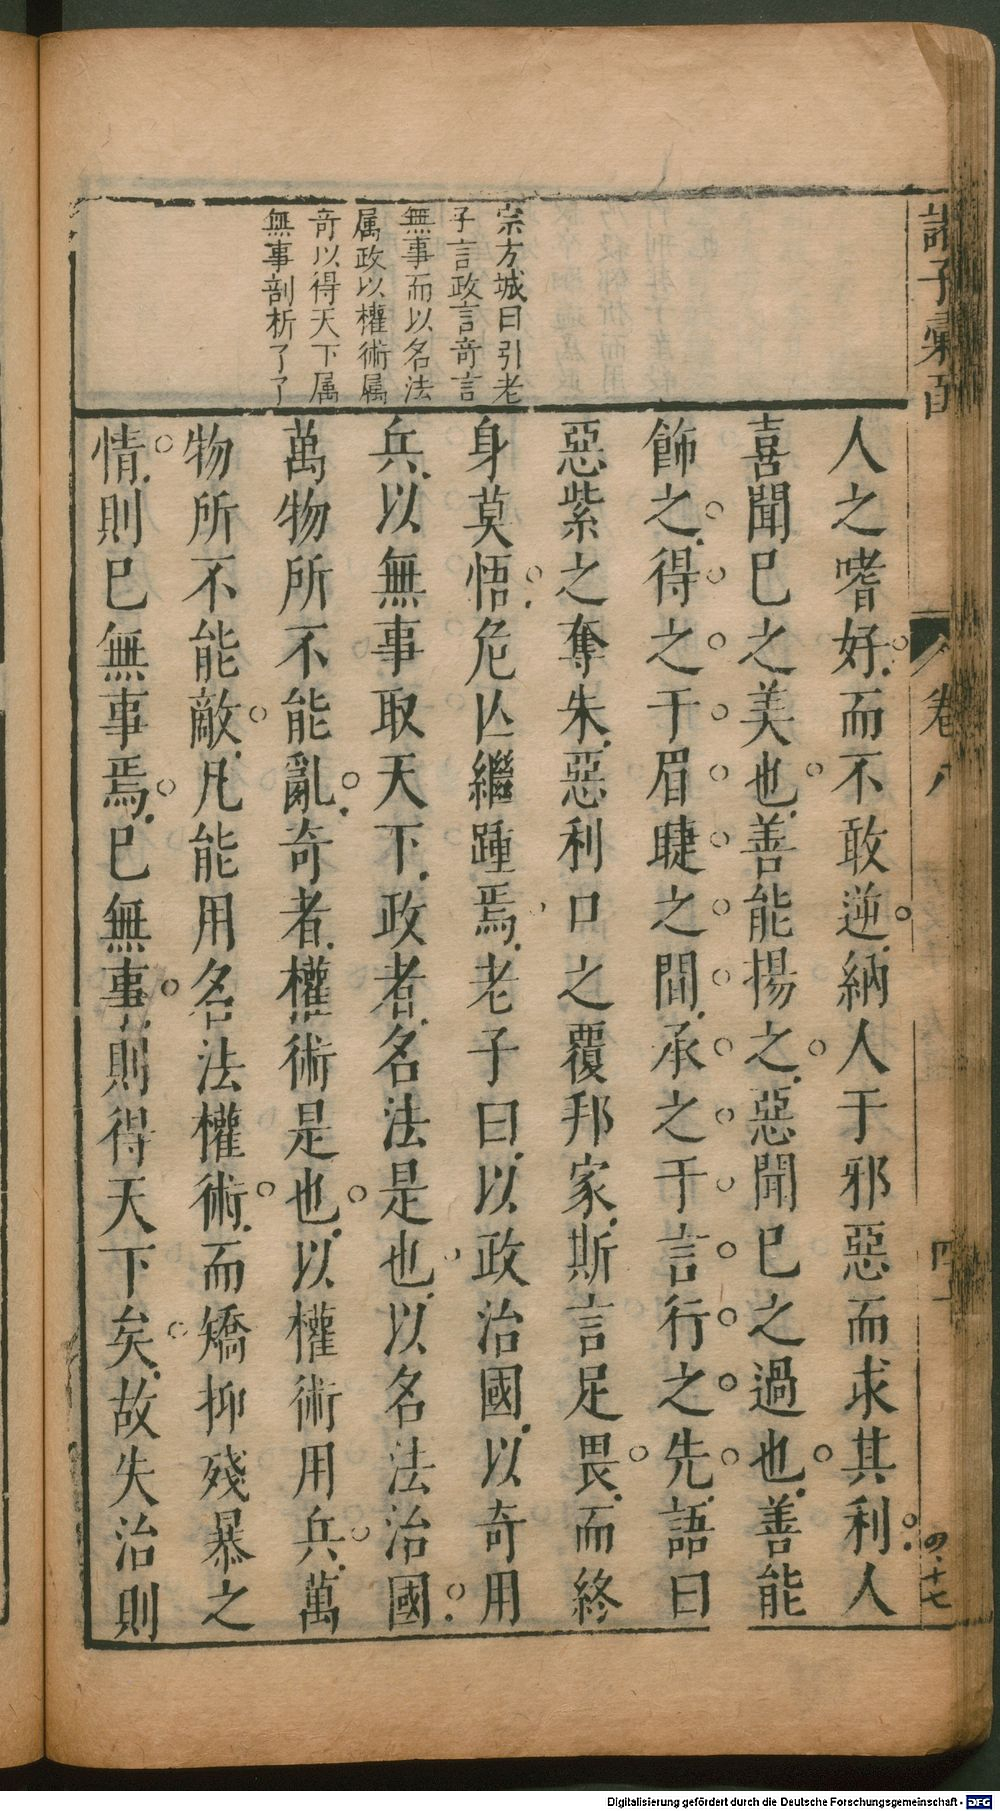 諸子彙函
卷八
四十
四·十七
宗方城曰引老
子言政言奇言
無事而以名法
属政以權術属
奇以得天下属
無事剖析了了
人之嗜好而不敢逆納人于邪惡而求其利人
喜聞巳之美也善能揚之惡聞巳之過也善能
飾之得之于眉睫之間承之于言行之先語曰
惡紫之奪朱惡利口之覆邦家斯言足畏而終
身莫悟危亾繼踵焉老子曰以政治國以奇用
兵以無事取天下政者名法是也以名法治國
萬物所不能亂奇者權術是也以權術用兵萬
物所不能敵凡能用名法權術而矯抑殘暴之
情則巳無事焉巳無事則得天下矣故失治則
Digitalisierung gefördert durch die Deutsche Forschungsgemeinschaft - DFG